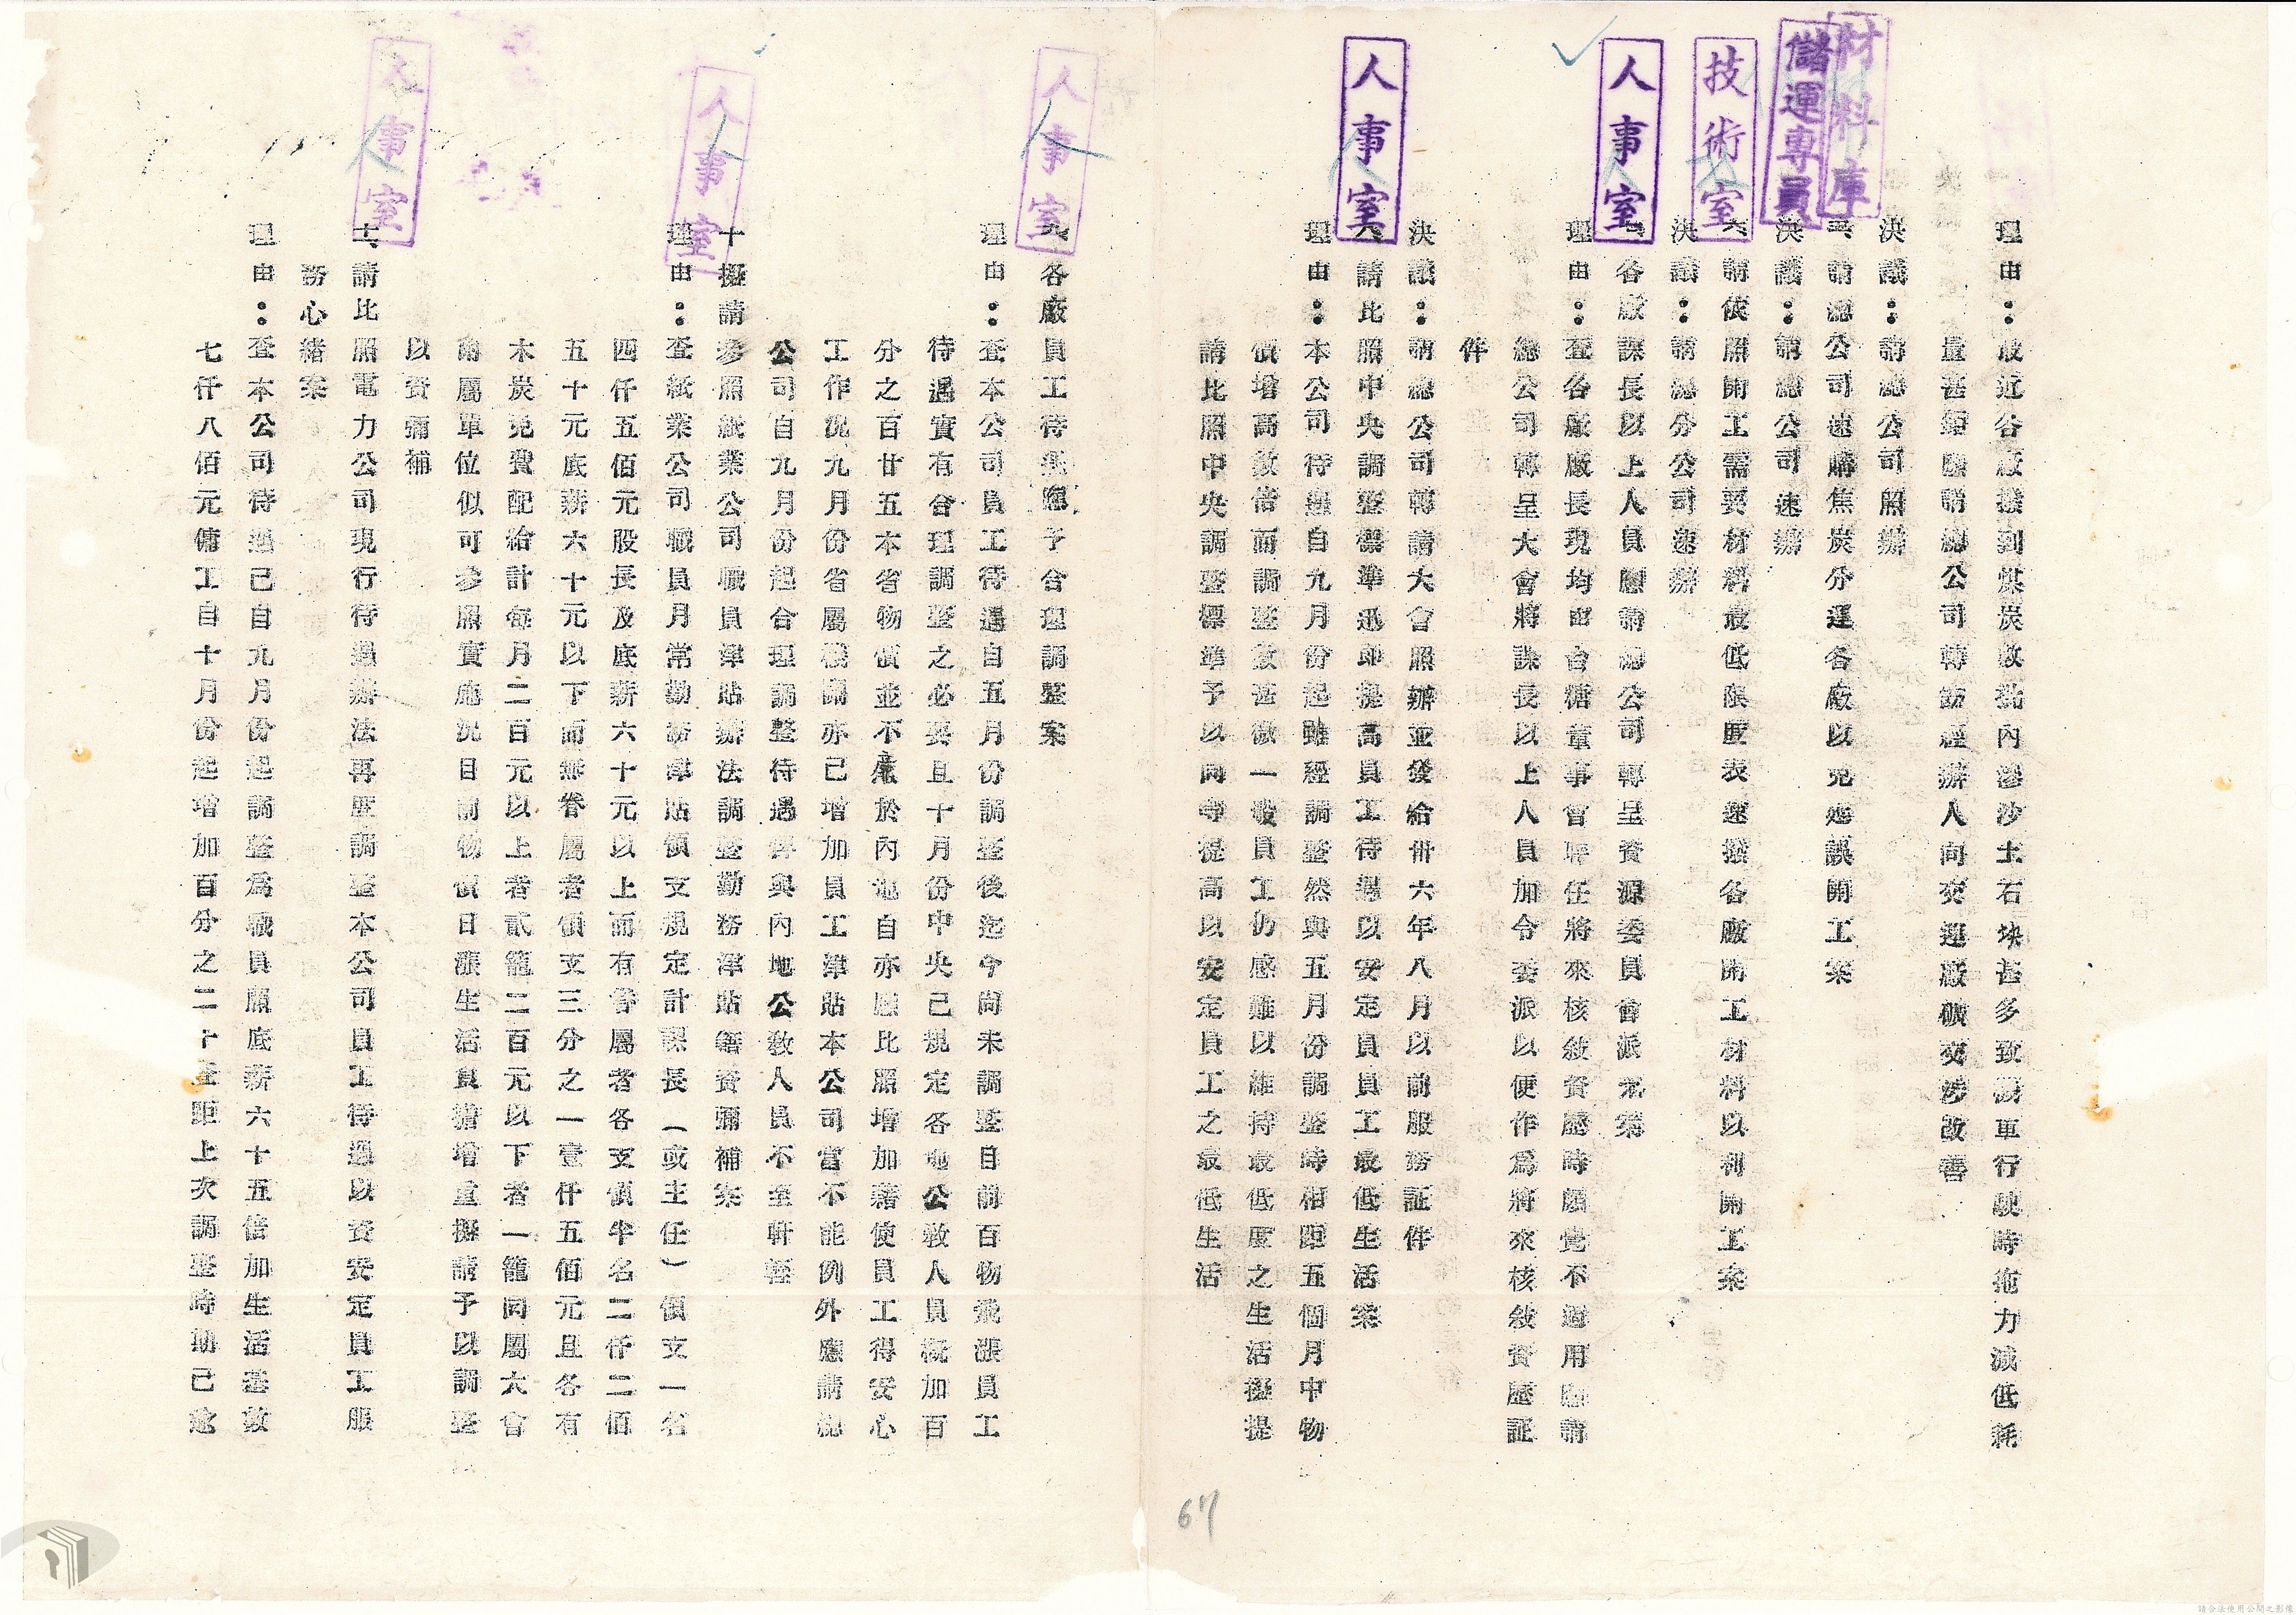 理由：最近各廠接到煤炭數批內滲沙土石块甚多致物車行駛時拖力減低耗
量甚鉅應請總公司轉飭經辦人向交運廠礦交涉改善
決議：請總公司照辦
請總公司速購焦炭分運各廠以免延誤開工案
決議：請總公司速辦
六、請依照開工需要材料最低限度表速撥各廠開工材料以利開工案
決議：請總分公司速辦
七、各廠課長以上人員應請總公司轉呈資源委員會派充案
理由：查各廠廠長現均由台糖董事會聘任將來核敘資歷時頗覺不適用應請
總公司轉呈大會將課長以上人員加令委派以便作為將來核敘資歷証
件
決議：請總公司轉請大會照辦並發給卅六年八月以前服務証件
八、請比照中央調整標準迅即提高員工待遇以安定員工最低生活案
理由：本公司待遇自九月份起雖經調整然與五月份調整時相距五個月中物
價增高數倍而調整數甚微一般員工仍感難以維持最低度之生活擬提
請比照中央調整標準予以同等提高以安定員工之最低生活
九、各廠員工待遇應予合理調整案
理由：查本公司員工待遇自五月份調整後迄今尚未調整目前百物飛漲員工
待遇實有合理調整之必要且十月份中央已規定各地公教人員概加百
分之百廿五本省物價並不廉於內地自亦應比照增加藉使員工得安心
工作況九月份省屬機關亦已增加員工津貼本公司當不能例外應請總
公司自九月份起合理調整待遇俾與內地公教人員不至軒輊
十、擬請參照紙業公司職員津貼辦法調整勤務津貼藉資彌補案
理由：查紙業公司職員月常勤務津貼領支規定計課長（或主任）領支一名
四仟五佰元股長及底薪六十元以上而有眷屬者各支領半名二仟二佰
五十元底薪六十元以下而無眷屬者領支三分之一壹仟五佰元且各有
木炭免費配給計每月二百元以上者貳籠二百元以下者一籠同屬大會
附屬單位似可參照實施況目前物價日漲生活負擔增重擬請予以調整
以資彌補
十一、請比照電力公司現行待遇辦法再度調整本公司員工待遇以資安定員工服
務心緒案
理由：查本公司待遇已自九月份起調整為職員照底薪六十五倍加生活基數
七仟八佰元傭工自十月份起增加百分之二十查距上次調整時期已逾
人事室
人事室
技術室
儲運專員
材料庫
人事室
人事室
人事室
67
請合法使用公開之影像